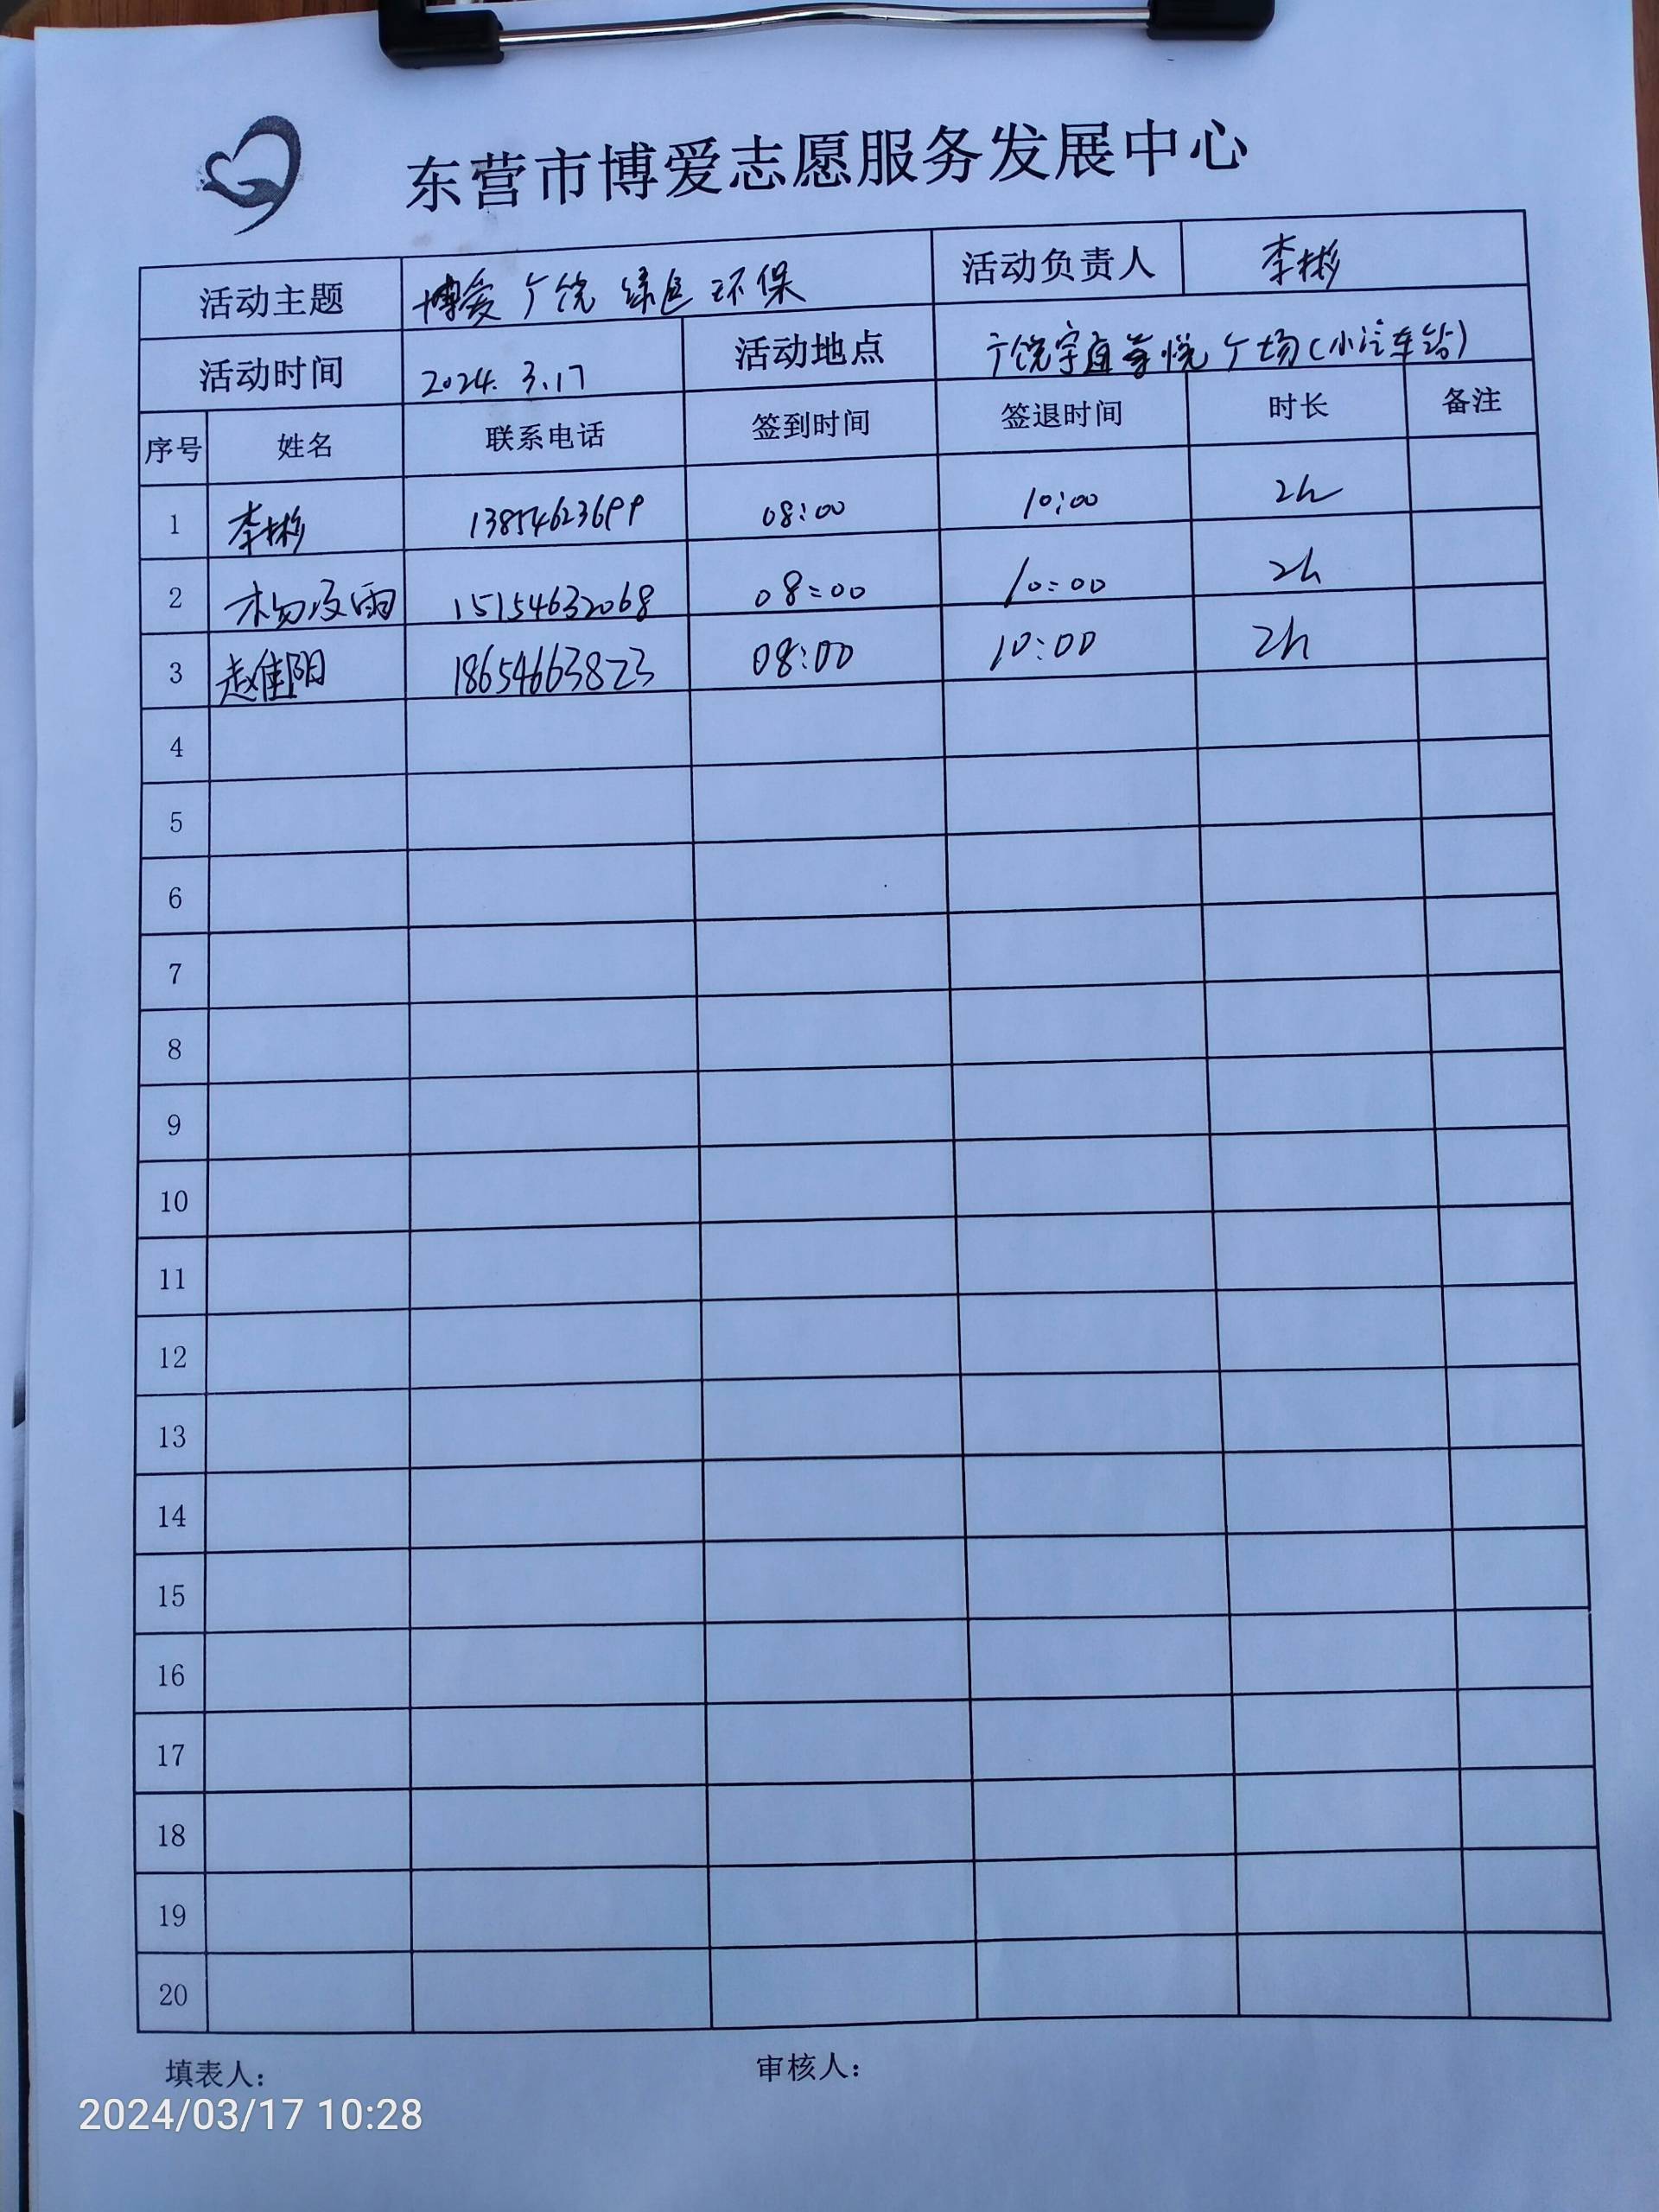 东营市博爱志愿服务发展中心
活动主题 博爱广饶 绿色环保 活动负责人 李彬
活动时间 2024. 3.17 活动地点 广饶 广场(小汽车站)
序号 姓名 联系电话 签到时间 签退时间 时长 备注
1 李彬 13854623699 08:00 10:00 2h
2 15154632068 08:00 10:00 2h
3 赵佳阳 18654663823 08:00 10:00 2h
4
5
6
7
8
9
10
11
12
13
14
15
16
17
18
19
20
填表人: 审核人:
2024/03/17 10:28